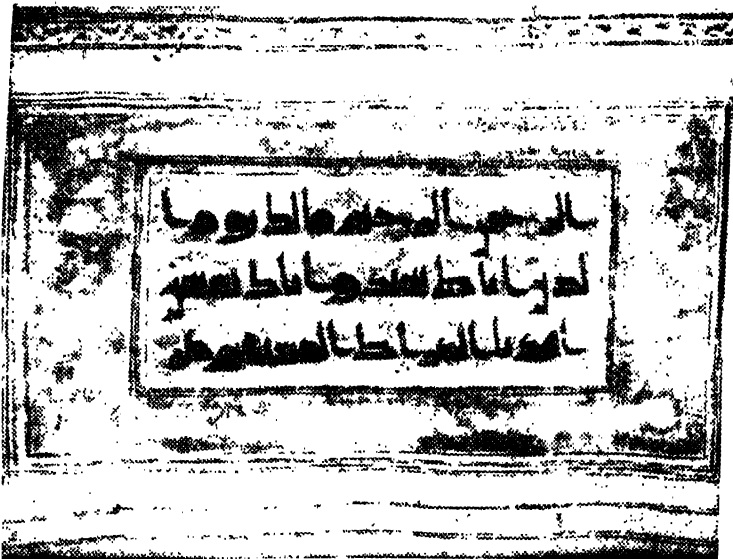 الرحمن الرحيم ملك يوم ا
لدين اياك نعبد و اياك نستعين
اهدنا الصراط المستقيم صر